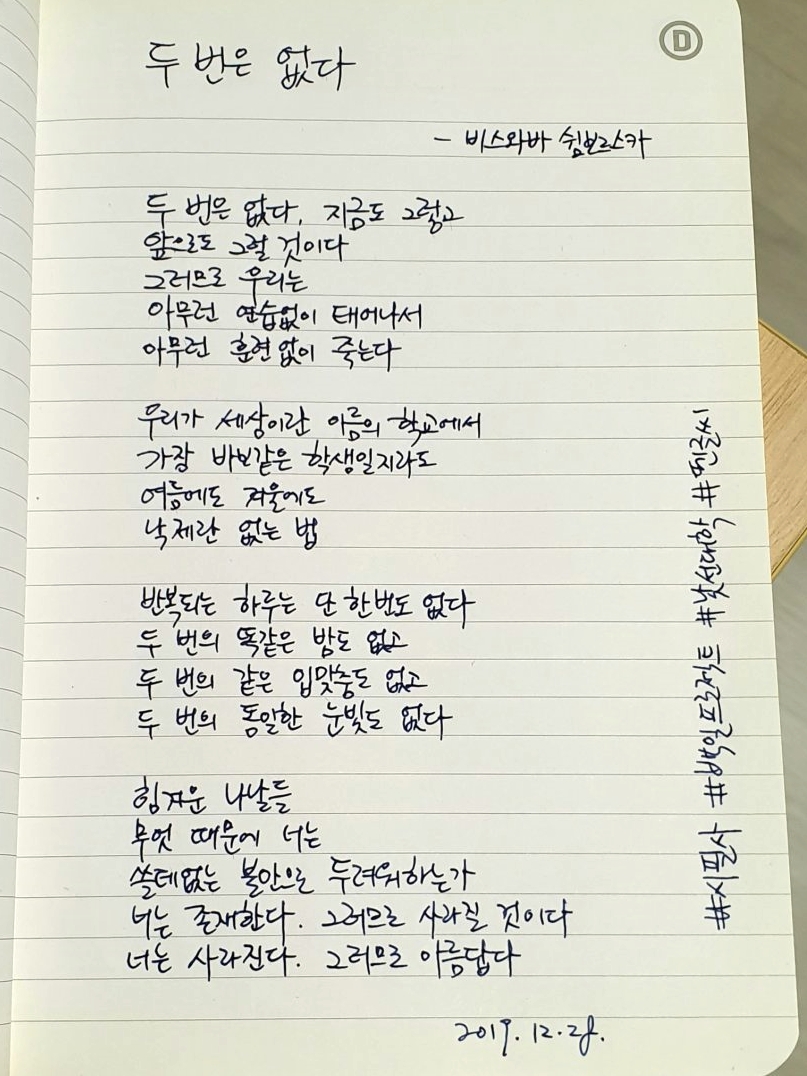 D
두 번은 없다
- 비스와바 쉼보르스카
두 번은 없다. 지금도 그렇고
앞으로도 그럴 것이다
그러므로 우리는
아무런 연습없이 태어나서
아무런 훈련없이 죽는다
우리가 세상이란 이름의 학교에서
가장 바보같은 학생일지라도
여름에도 겨울에도
낙제란 없는 법
반복되는 하루는 단 한번도 없다
두 번의 똑같은 밤도 없고
두 번의 같은 입맞춤도 없고
두 번의 동일한 눈빛도 없다
힘겨운 나날들
무엇 때문에 너는
쓸데없는 불안으로 두려워하는가
너는 존재한다. 그러므로 사라질 것이다
너는 사라진다. 그러므로 아름답다
2019. 12. 28.
#시필사 #펜글씨